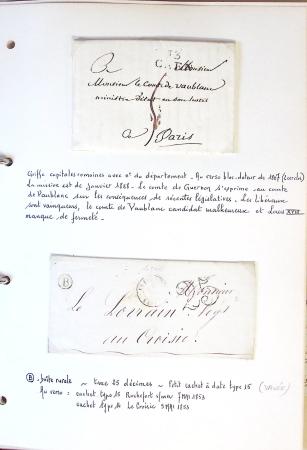 73
A Monsieur
Monsieur le Comte de Vaublanc
ministre d'état
A Paris
Griffe capitales romaines avec n° du département - Au verso bloc dateur de 1817 (cercle)
La missive est de janvier 1818. Le comte de s'exprime au comte
de Vaublanc sur les conséquences de récentes législatives. Les libéraux
sont vainqueurs, le comte de Vaublanc candidat malheureux et Louis XVIII
manque de fermeté.
B
25
Monsieur
Le Lorrain
au Croisic
B boîte rurale ~ taxe 25 décimes ~ Petit cachet à date type 15
Au verso : cachet type 15 Rochefort 7 MAI 1853
cachet type 15 Le Croisic 9 MAI 1853